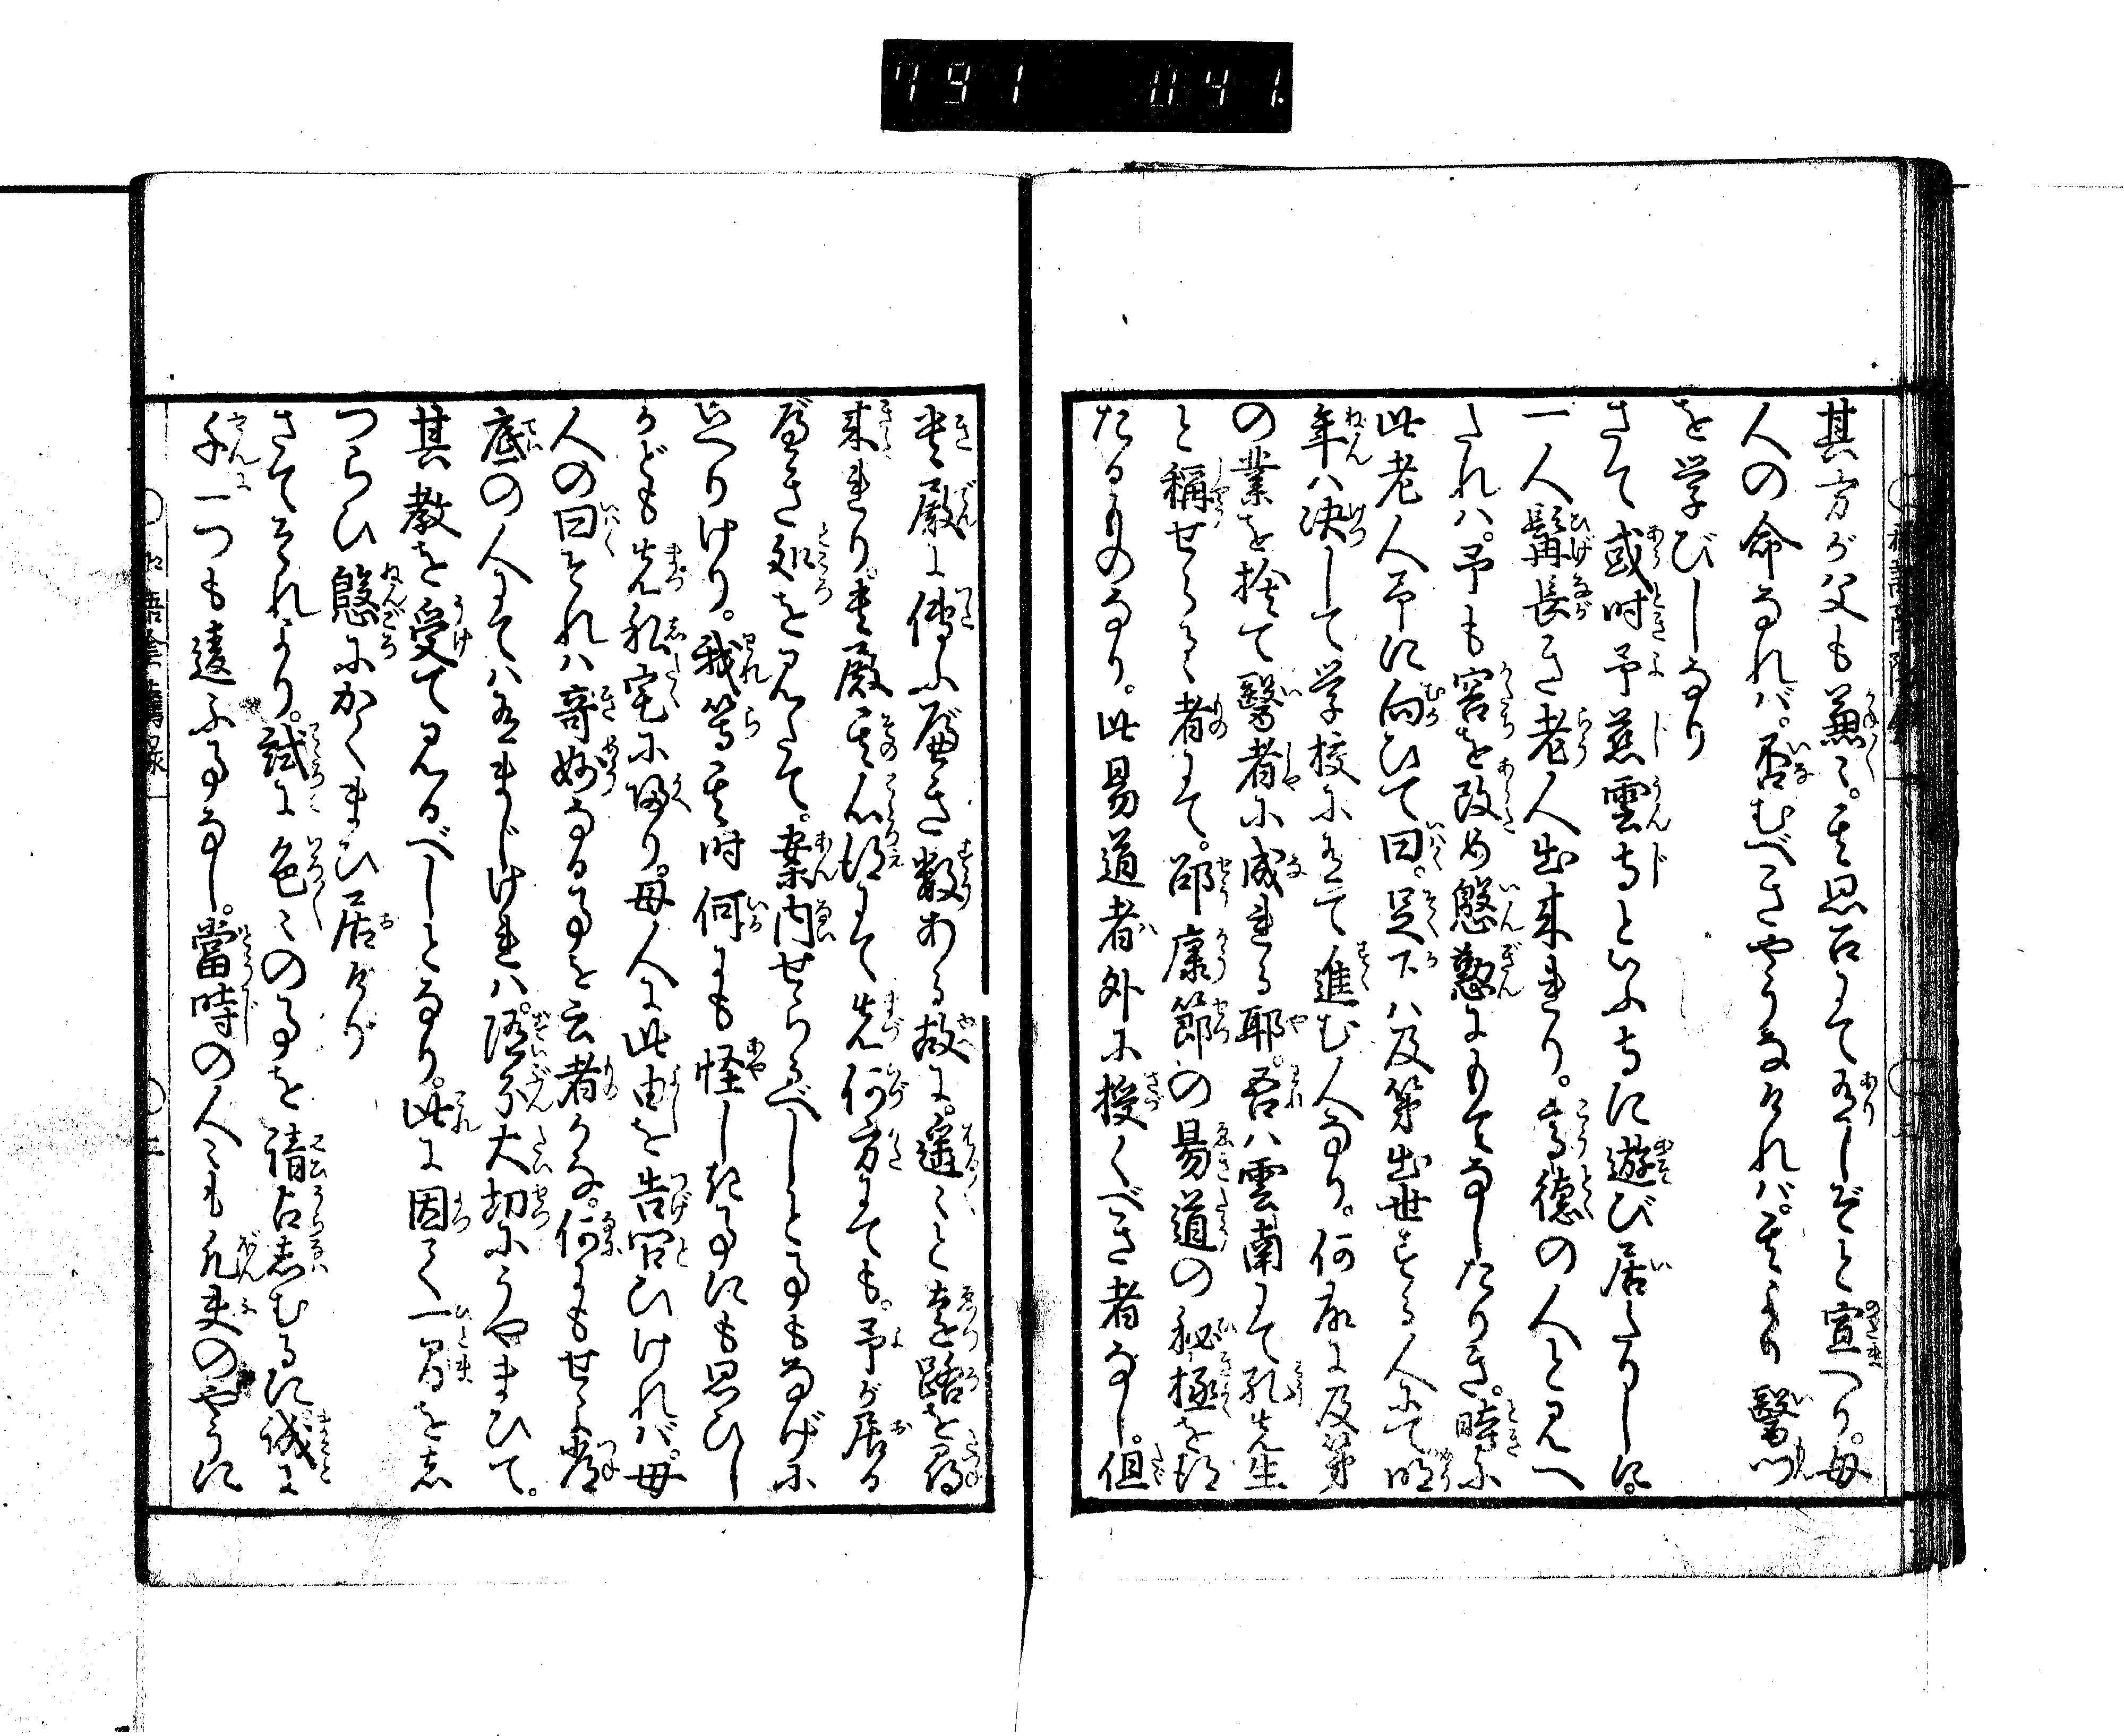 791 041.
其方が父も兼々。其思召にて有しぞと宣へり。母
人の命なれバ。否むべきやうなければ。其より醫門
を学びしなり
さて或时予慈雲寺といふ寺に遊び居たりしに。
一人髯長き老人出来れり。高德の人と見へ
たれハ。予も容を改め慇懃にもてなしたりき。時に
此老人予に向ひて曰。足下ハ及第出世する人にて明
年ハ决して学校に有て進む人なり。何故に及第
の業を捨て醫者に成れる耶。吾ハ雲南にて孔先生
と稱せらるゝ者にて。邵康節の易道の秘極を得
たるものなり。此易道者外に授くべき者なし。但
貴殿に傳ふべき数ある故に。遥々と遠路を尋
来れり。貴殿其心得にて先何方にても。予が居る
べき処を見たて。案内せらるべしと事もなげに
述べりけり。我等其时何にも怪しき事にも思ひし
かども先私宅に帰り。母人に此由を告问ひけれバ。母
人の曰それハ奇妙なる事を云者かな。何にもせよ常
底の人にてハ有まじけれハ。随分大切にうやまひて。
其教を受て見るべしとなり。此に因て一间を志
つらひ慇にかくまひ居けるが
さてそれより。試に色々の事を請占志むるに誠に
千一つも違ふ事なし。當時の人々も凡夫のやうに